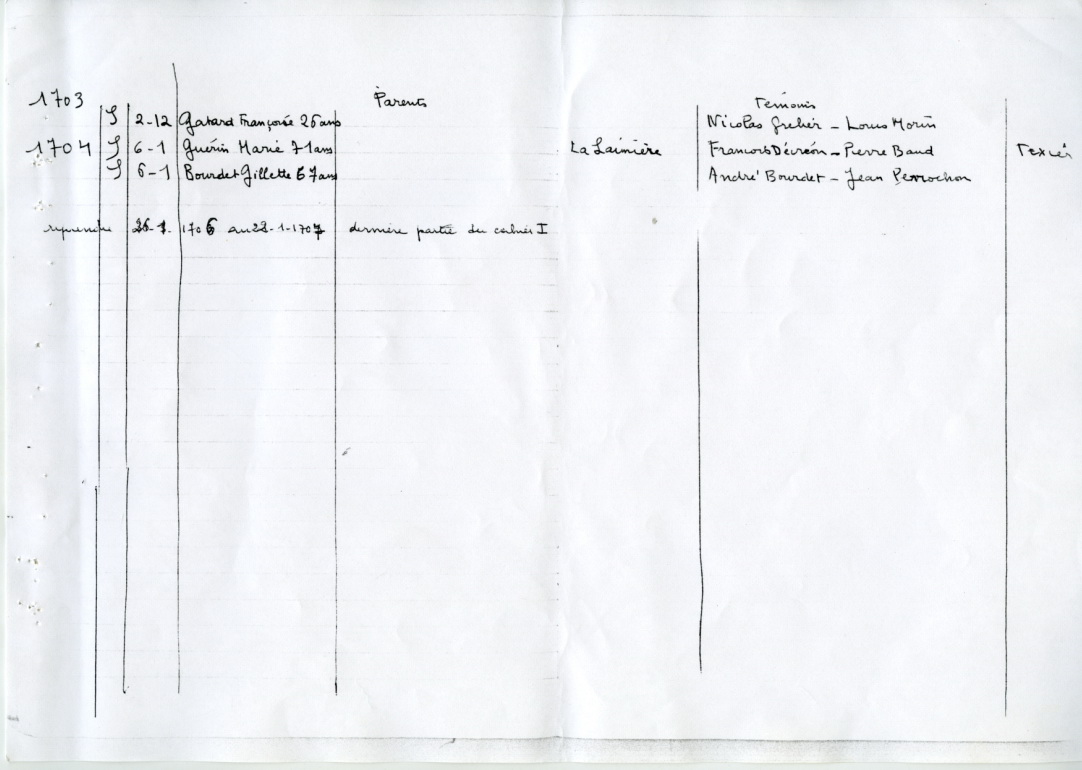 1703 Parents Témoins
S 2-12 Gatard Françoise 26 ans Nicolas Grelier - Louis Morin
1704 S 6-1 Guérin Marie 71 ans La Lainière François Décréon - Pierre Baud Texier
S 6-1 Bourdet Gillette 67 ans André Bourdet - Jean Perrochon
reprendre 26-1. 1706 au 22-1-1707 dernière partie du cahier I